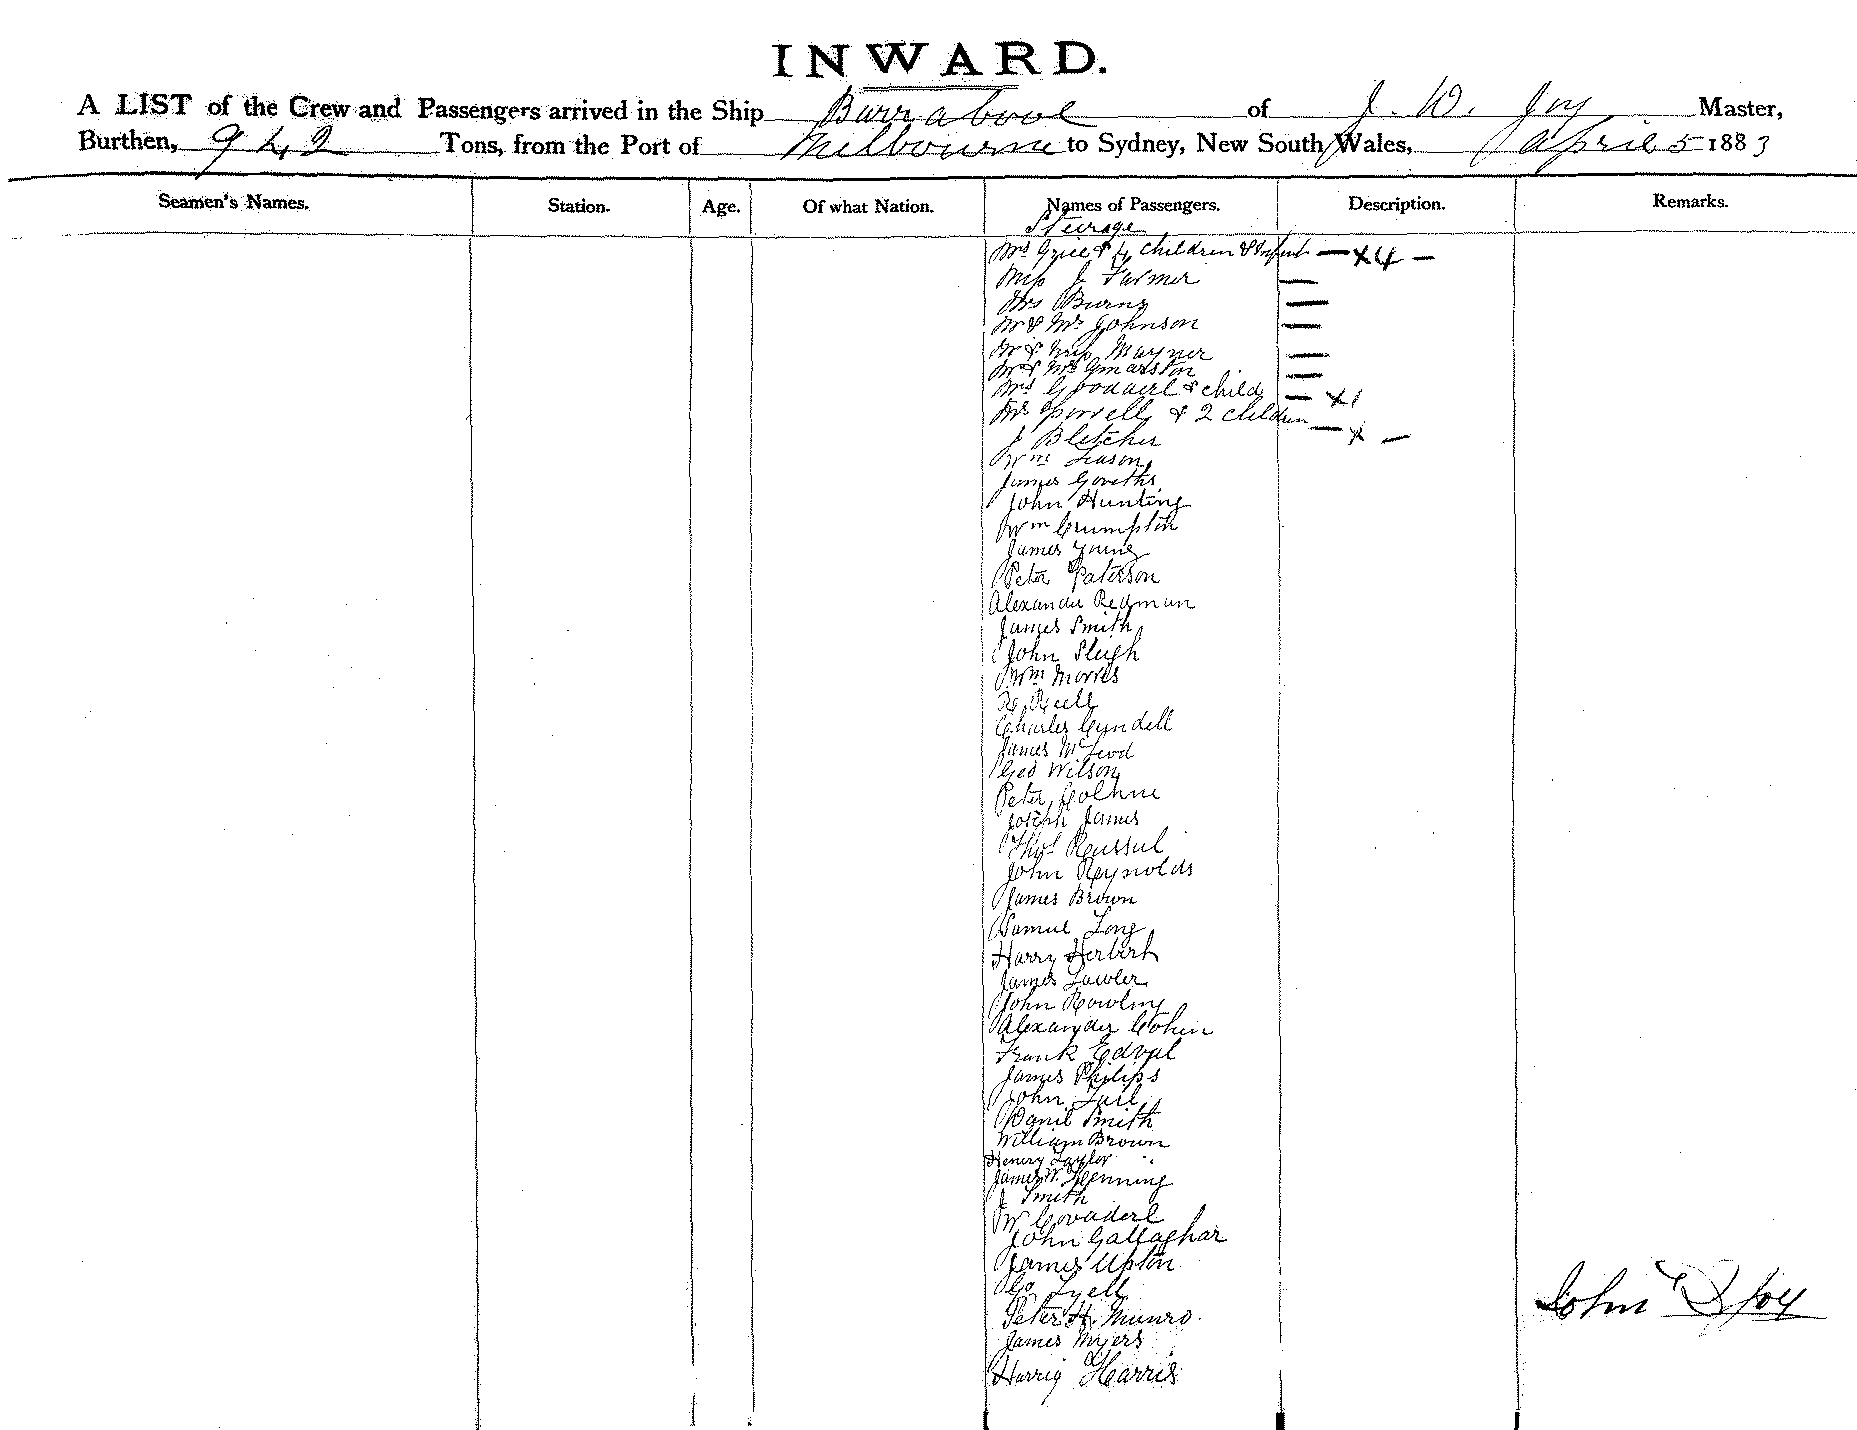 INWARD.
A LIST of the Crew and Passengers arrived in the Ship Burrabool of J. W. Joy Master,
Burthen, 942 Tons, from the Port of Melbourne to Sydney, New South Wales, April 5 1883
Seamen's Names. Station. Age. Of what Nation. Names of Passengers. Description. Remarks.
Steerage
Mrs & 4 children & Infant — x4 —
Miss J Farmer —
Mrs Burns —
Mr & Mrs Johnson —
Mr & Miss Mayner —
Mr & Mrs —
Mrs & child — x1
& 2 children — x —
J Bletcher
Wm Leason
James
John Hunting
Wm Crumpton
James Young
Peter Paterson
Alexander Redman
James Smith
John Sleigh
Wm Morris
Charles Cundell
James McLeod
Geo Wilson
Peter
Joseph James
Thos Russul
John Reynolds
James Brown
Samuel Long
Harry Herbert
James Lawler
John Rowling
Alexander Cohen
Frank
James Philips
John
Daniel Smith
William Brown
Henery Taylor
James W.
J Smith
W
John Gallaghar
James Upton
Geo Lyell
Peter H. Munro.
James Myers
Harris
John W Joy